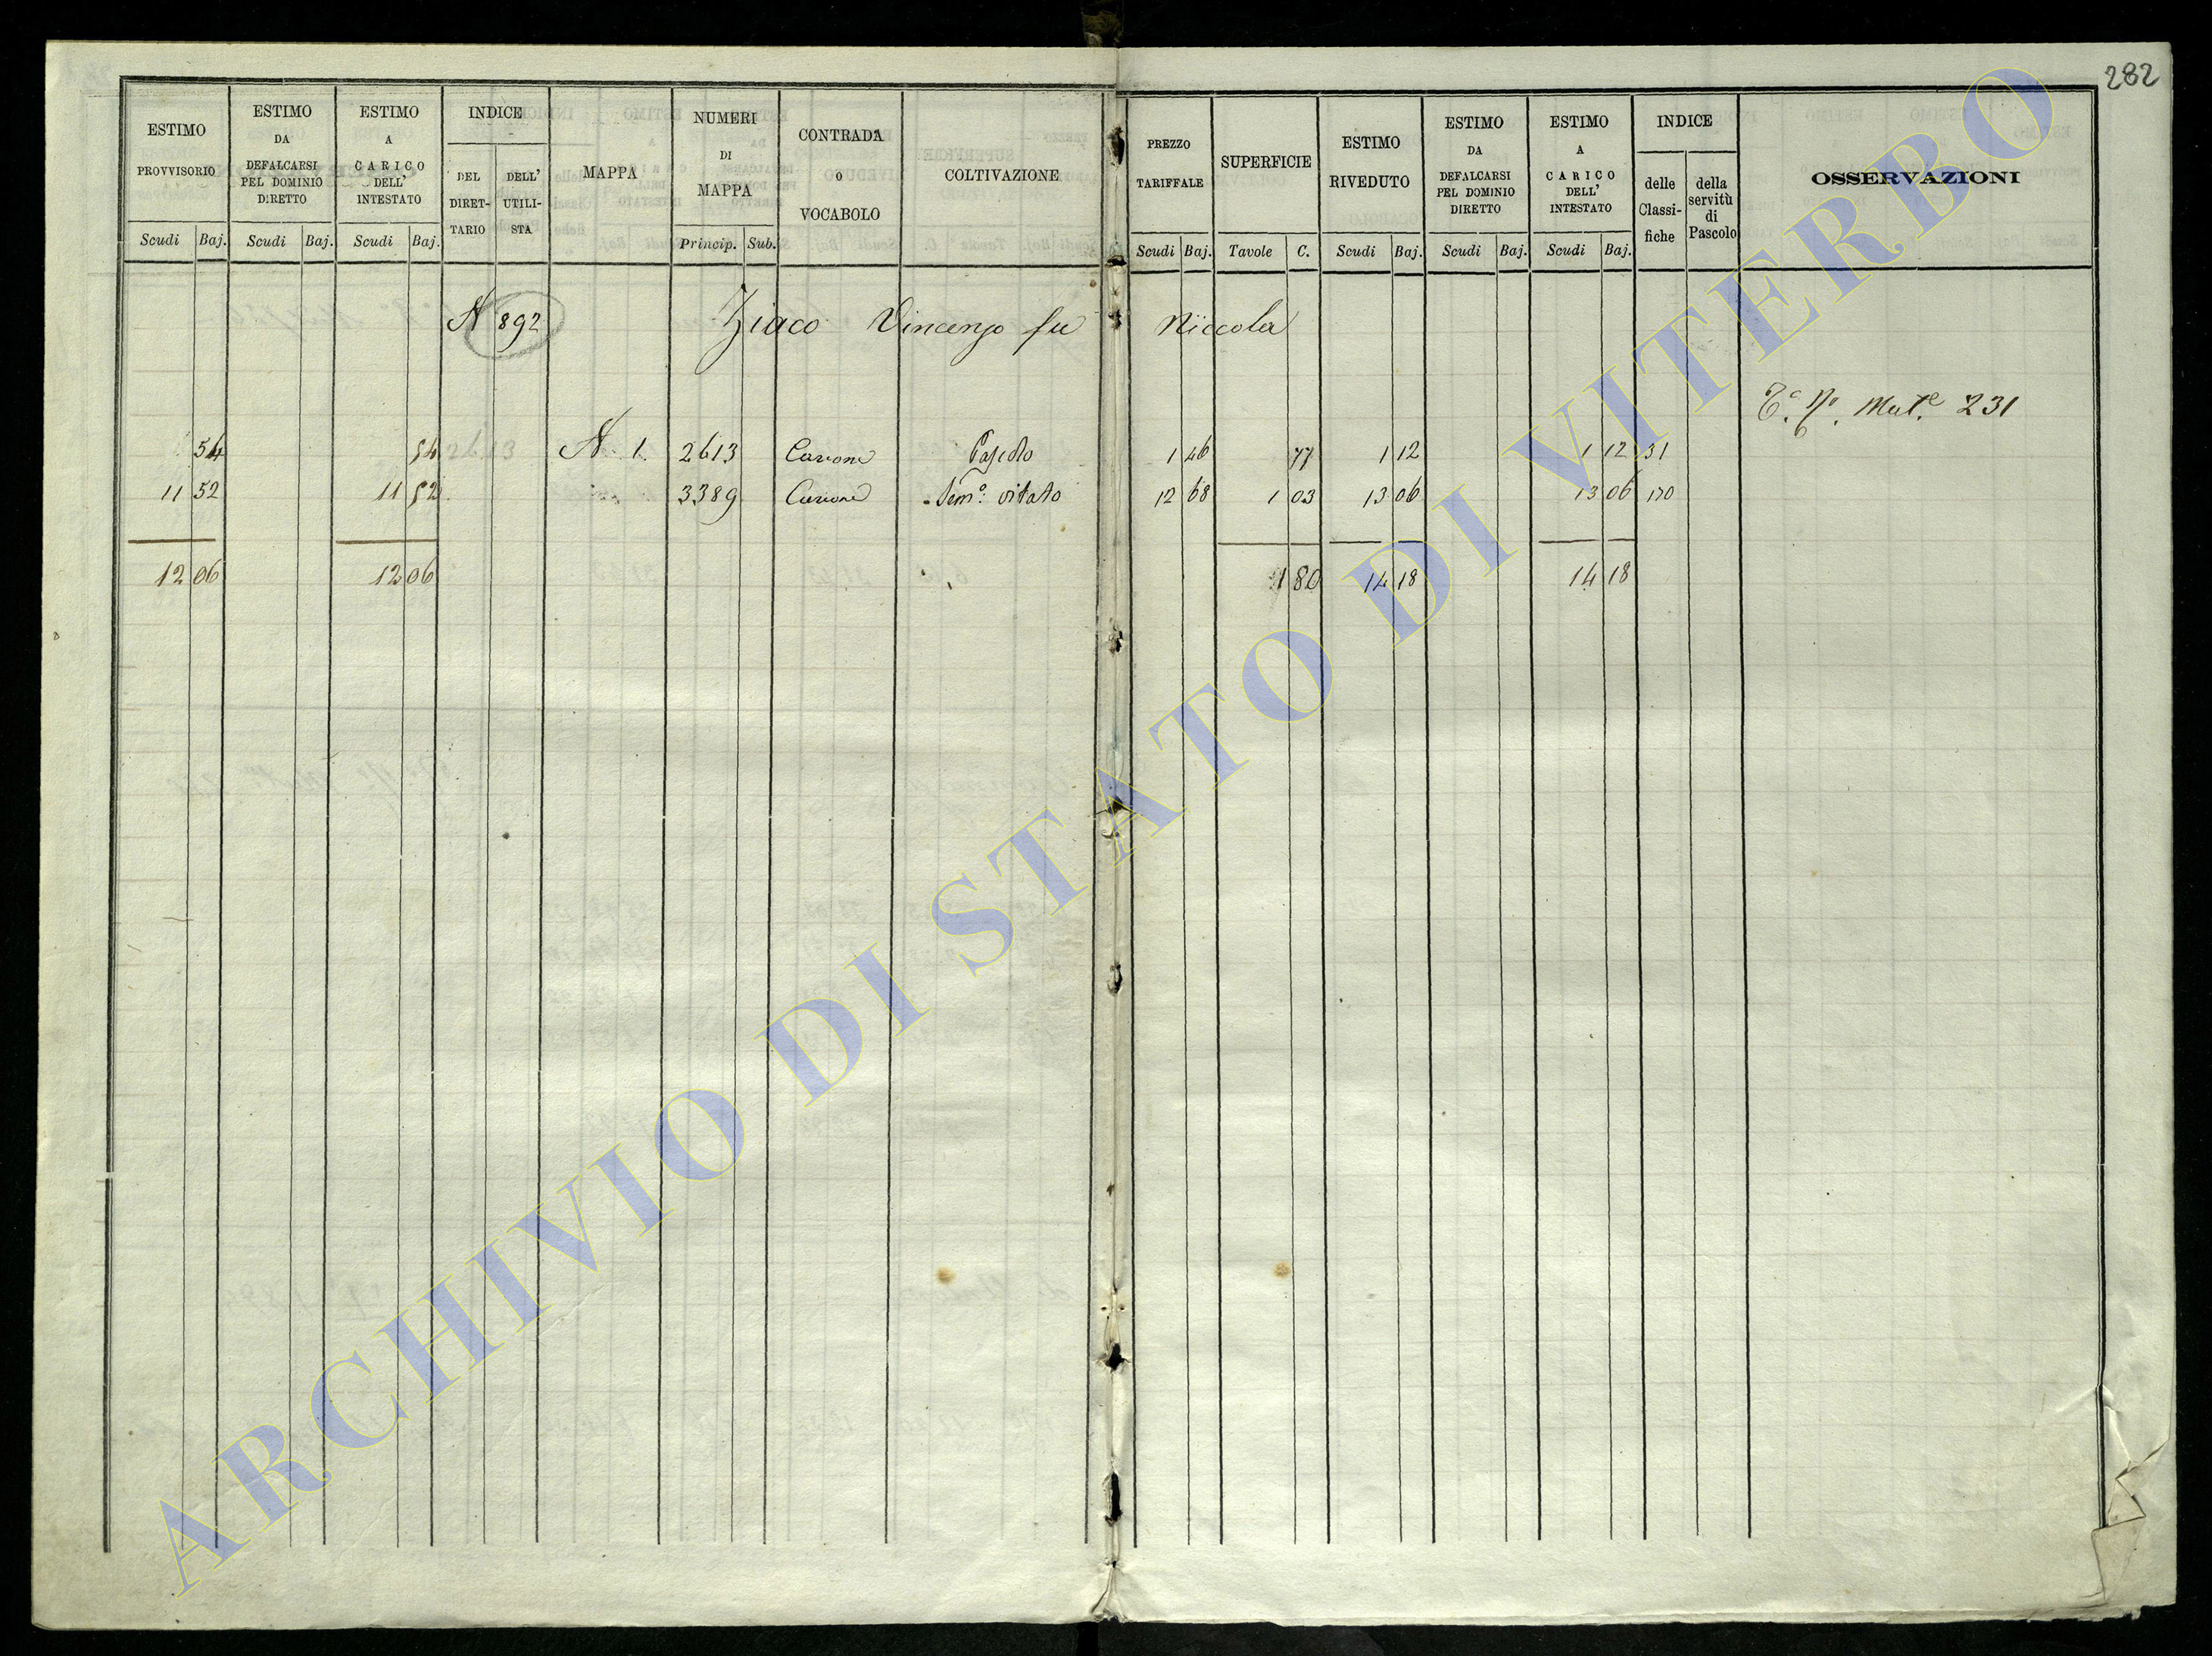 282
ESTIMO PROVVISORIO
ESTIMO DA DEFALCARSI PEL DOMINIO DIRETTO
ESTIMO A CARICO DELL' INTESTATO
INDICE
DEL DIRET-TARIO
DELL' UTILI-STA
MAPPA
NUMERI DI MAPPA
CONTRADA O VOCABOLO
COLTIVAZIONE
PREZZO TARIFFALE
SUPERFICIE
ESTIMO RIVEDUTO
ESTIMO DA DEFALCARSI PEL DOMINIO DIRETTO
ESTIMO A CARICO DELL' INTESTATO
INDICE
delle Classi-fiche
della servitù di Pascolo
OSSERVAZIONI
Scudi Baj. Scudi Baj. Scudi Baj. Princip. Sub. Scudi Baj. Tavole C. Scudi Baj. Scudi Baj. Scudi Baj.
N 892 Ziaco Vincenzo fu Niccola
T.c N.o Mut.e 231
54 54 2613 N. 1. 2613 Pascolo 1 46 77 1 12 1 12 31
11 52 11 52 3389 Sem.o vitato 12 68 1 03 13 06 13 06 170
12 06 12 06 1 80 14 18 14 18
ARCHIVIO DI STATO DI VITERBO